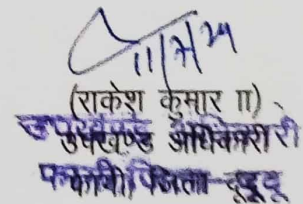 11/7/24
(राकेश कुमार II)
उपखण्ड अधिकारी
फागी, जिला-दूदू